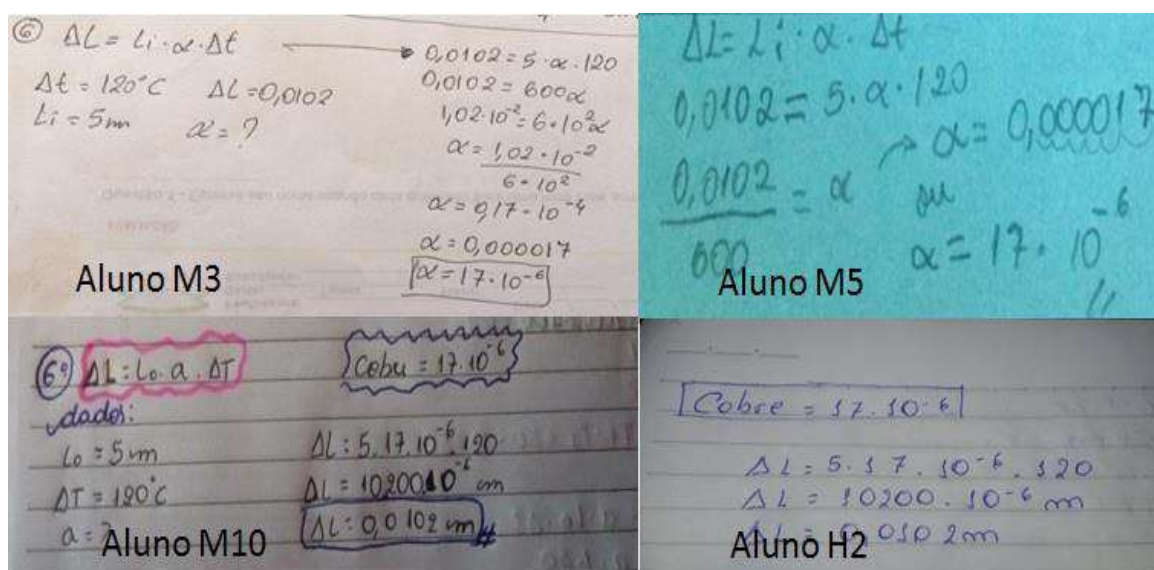 ⑥ ΔL = Li · α · Δt
Δt = 120°C ΔL = 0,0102
Li = 5m α = ?
0,0102 = 5 · α · 120
0,0102 = 600α
1,02·10⁻² = 6·10²α
α = 1,02·10⁻²
6·10²
α = 0,17·10⁻⁴
α = 0,000017
α = 17·10⁻⁶
Aluno M3
ΔL = Li · α · Δt
0,0102 = 5 · α · 120
0,0102 = α
600
α = 0,000017
ou
α = 17 · 10⁻⁶
Aluno M5
6º ΔL : Lo . a . ΔT
Cobu = 17.10⁻⁶
dados:
Lo = 5m
ΔT = 120°C
a = ?
ΔL : 5.17.10⁻⁶.120
ΔL = 10200.10⁻⁶ m
ΔL : 0,0102 m
Aluno M10
Cobre = 17.10-6
ΔL = 5.17.10⁻⁶.120
ΔL = 10200.10⁻⁶ m
0102m
Aluno H2